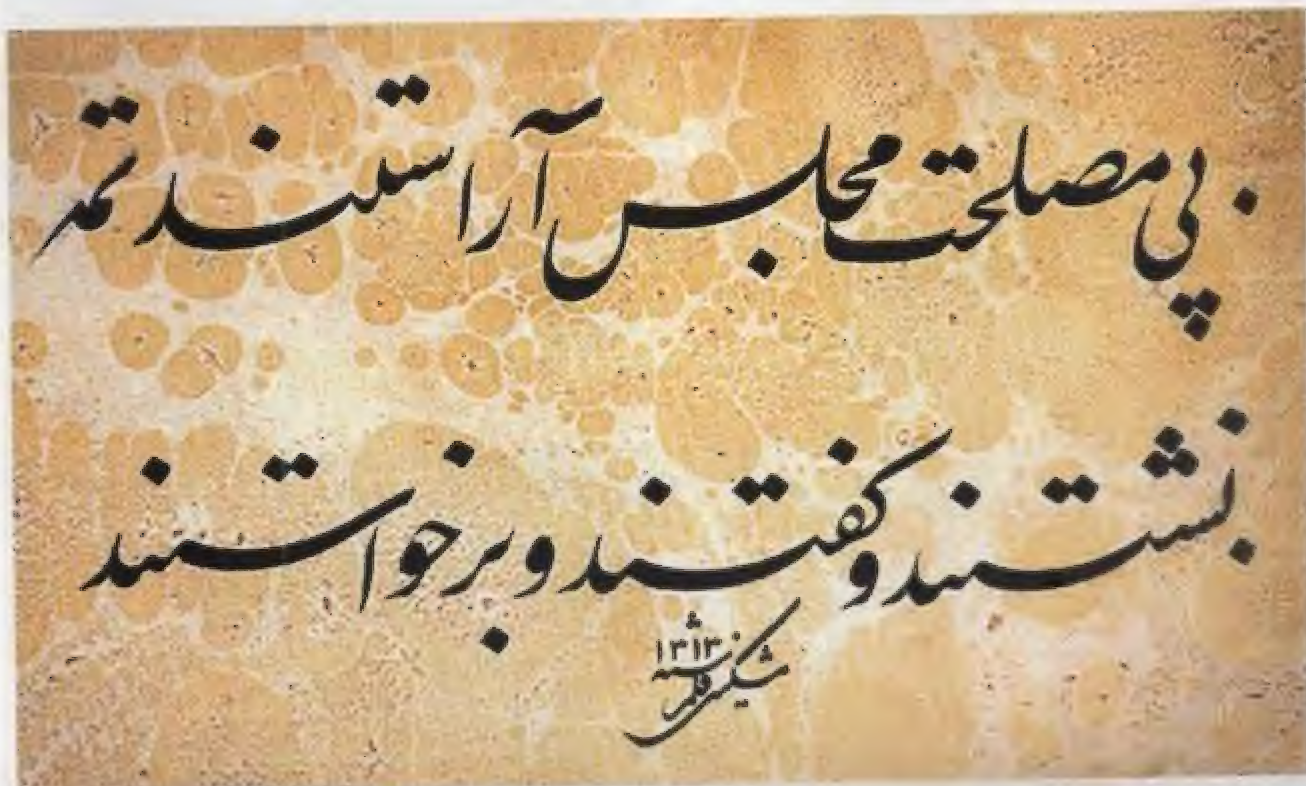 پی مصلحت مجلس آراستند
نشستند و گفتند و برخواستند
مشکین قلم سنه ۱۳۱۳